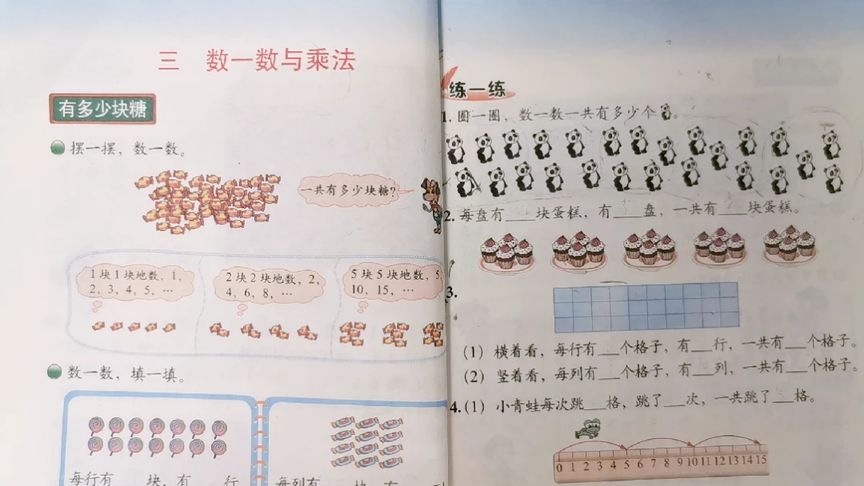 三 数一数与乘法
有多少块糖
摆一摆，数一数。
一共有多少块糖？
1块1块地数，1，
2，3，4，5，…
2块2块地数，2，
4，6，8，…
5块5块地数，5，
10，15，…
数一数，填一填。
每行有___块，有___行
每列有___块，有
练一练
1. 圈一圈，数一数一共有多少个。
2. 每盘有___块蛋糕，有___盘，一共有___块蛋糕。
3.
(1) 横着看，每行有___个格子，有___行，一共有___个格子。
(2) 竖着看，每列有___个格子，有___列，一共有___个格子。
4.(1) 小青蛙每次跳___格，跳了___次，一共跳了___格。
0 1 2 3 4 5 6 7 8 9 10 11 12 13 14 15